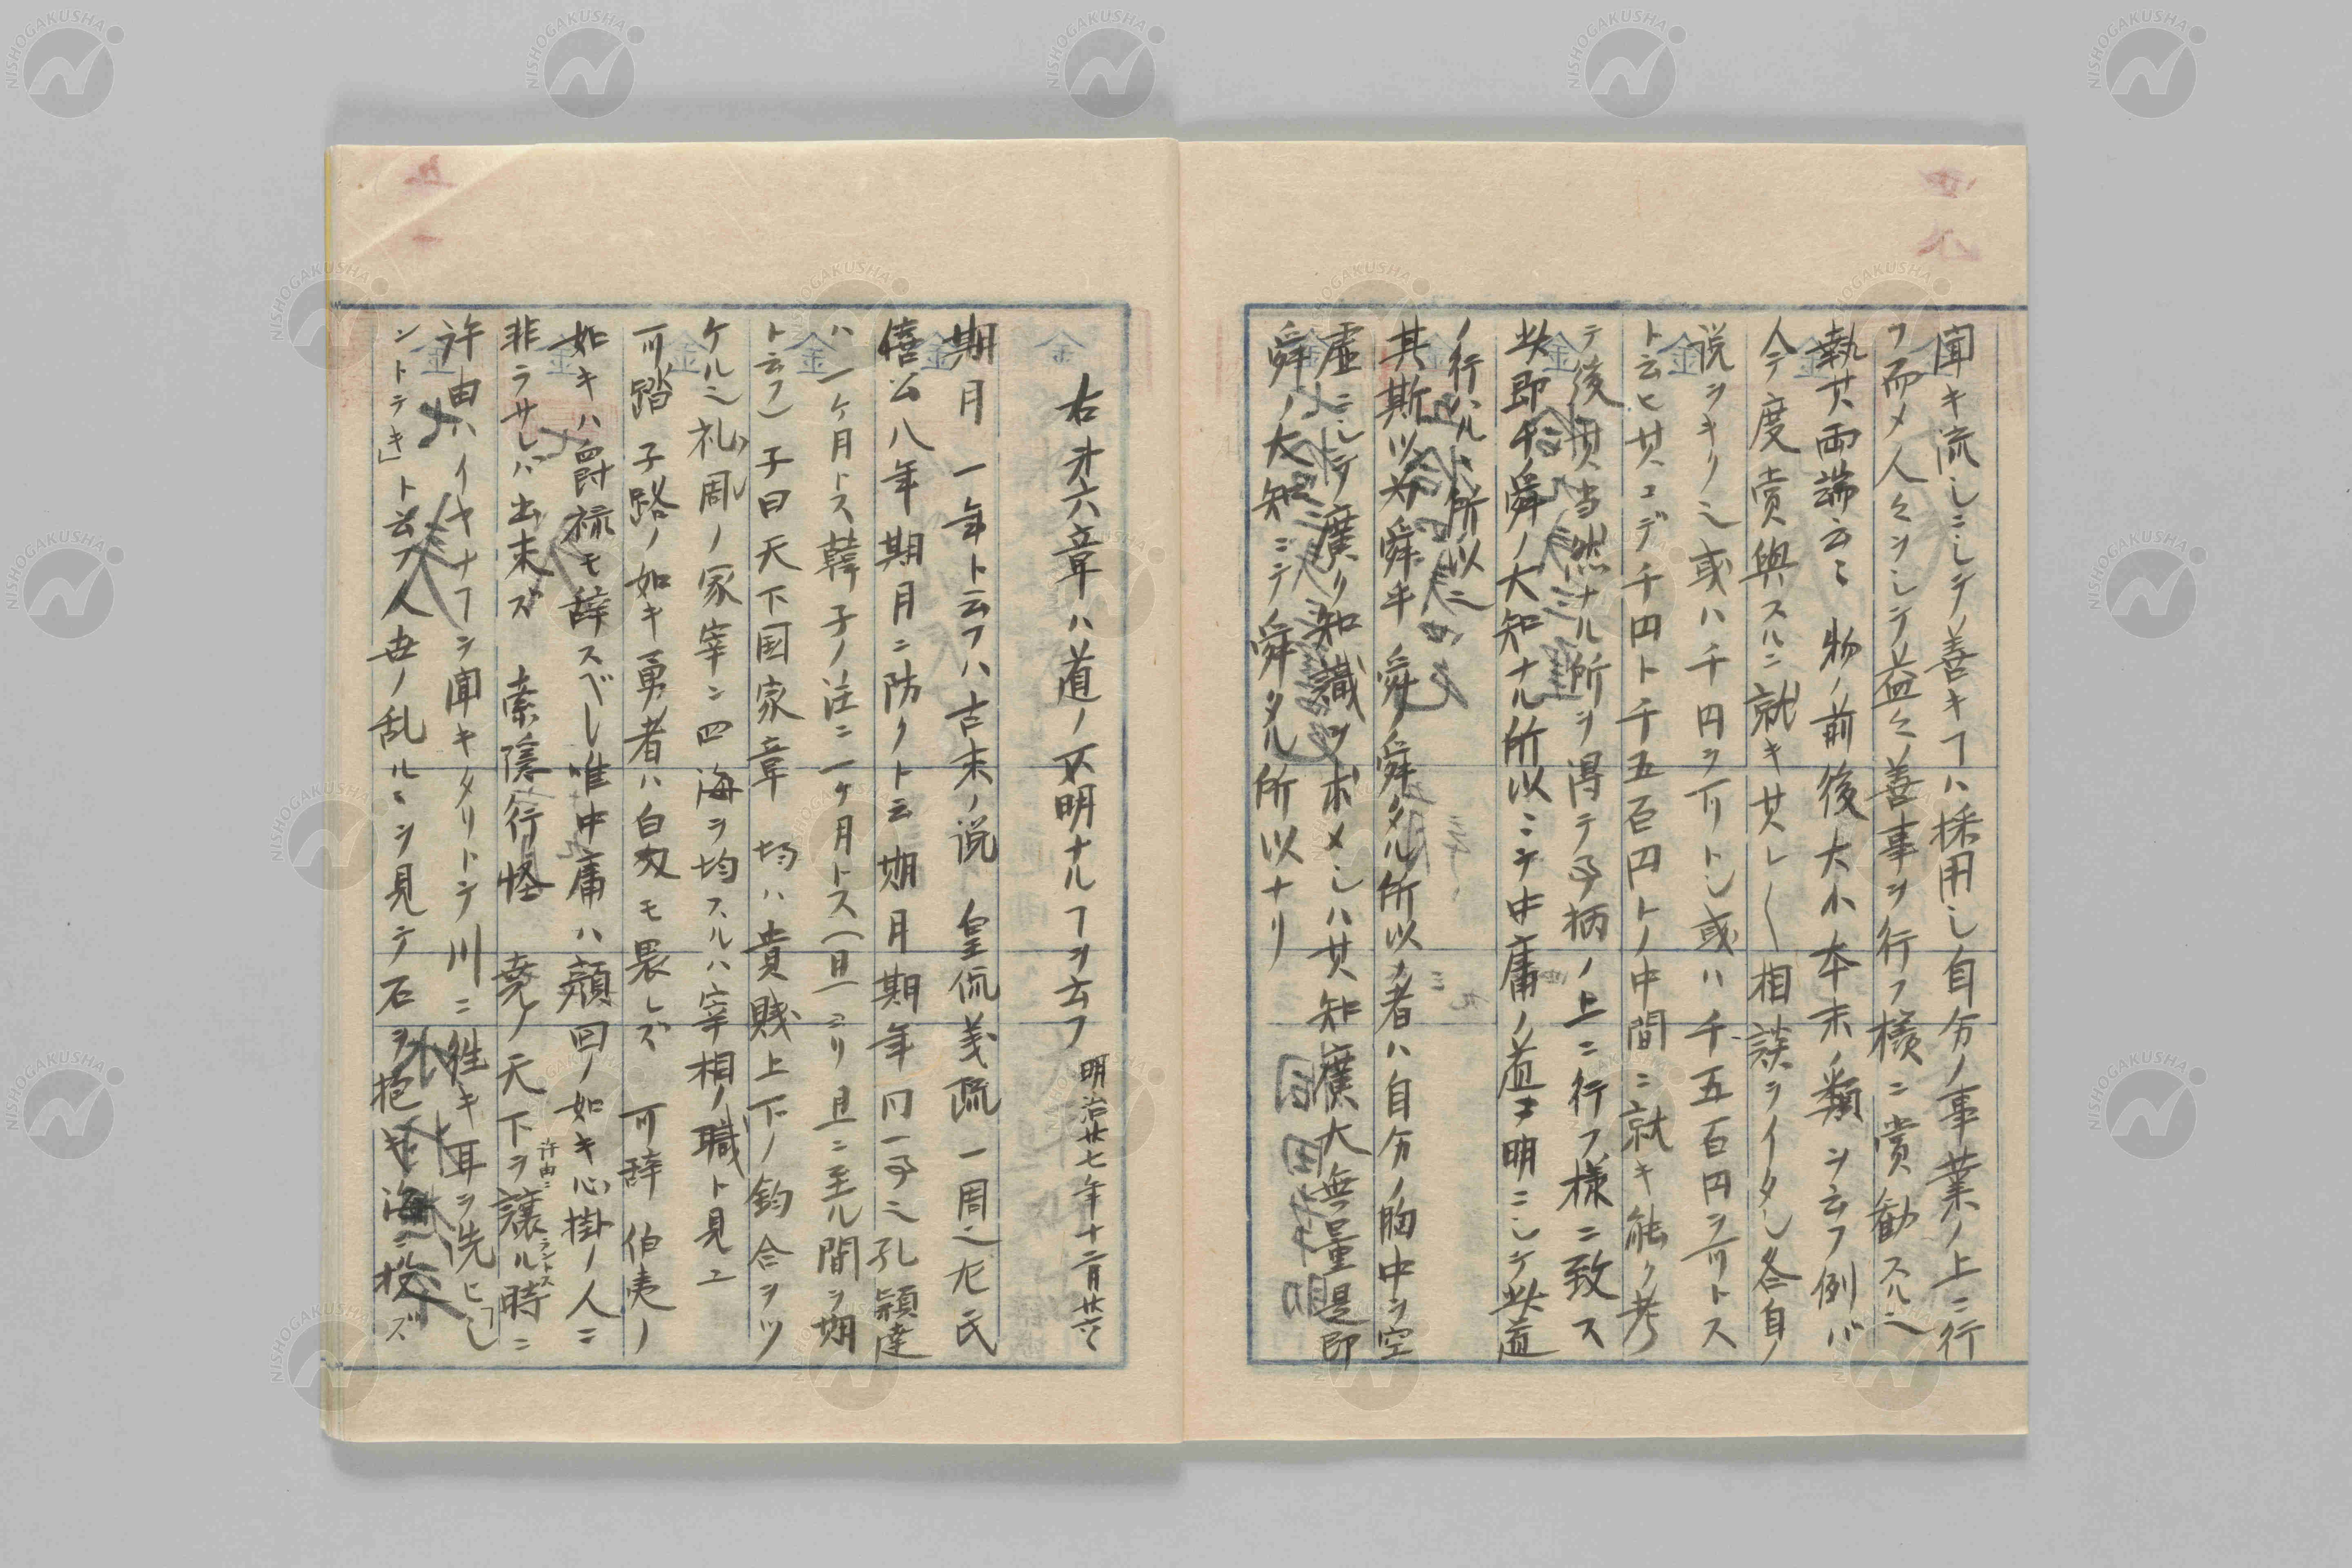 聞キ流シニシテノ善キヿハ採用シ自分ノ事業ノ上ニ行
フ而メ人々ヲシテ益々善事ヲ行フ様ニ賞勧スル也
執其両端云々 物ノ前後大小本末ノ類ヲ云フ例バ
今度賞與スルニ就キ其レ〱相談ヲイタシ各自ノ
説ヲキク也或ハ千円ヲ可トシ或ハ千五百円ヲ可トス
ト云ヒ其コデ千円ト千五百円トノ中間ニ就キ能ク考
テ後其当然ナル所ヲ得テ事柄ノ上ニ行フ様ニ致ス
此即チ舜ノ大知ナル所以ニテ中庸ノ道ヲ明ニシテ此道
ノ行ハル丶所以ニ
其斯以為舜乎 舜ノ舜タル所以ノ者ハ自分ノ胸中ヲ空
虚ニシテ廣ク知識ヲ ボメシハ其知廣大無量是即
舜ノ大知ニテ舜タル所以ナリ
右才六章ハ道ノ不明ナルヿヲ云フ 明治廿七年十二月廿六
期月 一年ト云フハ古来ノ説 皇侃義疏一周也左氏
僖公八年期月ニ防クト云期月期年同一事也孔頴達
ハ一ケ月トス韓子ノ注ニ一ケ月トス(旦一ヨリ旦ニ至ル間ヲ期
ト云フ)子曰天下国家章 均ハ貴賎上下ノ鈞合ヲツ
ケル也礼周ノ家宰ン四海ヲ均スルハ宰相ノ職ト見ユ
可踏子路ノ如キ勇者ハ白刃モ畏レズ 可辞伯夷ノ
如キハ爵禄モ辞スベシ唯中庸ハ顔回ノ如キ心掛ノ人ニ
非ラサレバ出来ズ 素隠行怪 堯ノ天下ヲ許由ニ譲ルラントス時ニ
許由ハイヤナヿヲ聞キタリトテ川ニ徃キ耳ヲ洗ヒ「シ
ントテキ」ト云フ人世ノ乱ル丶ヲ見テ石ヲ抱キ海ニ投ズ